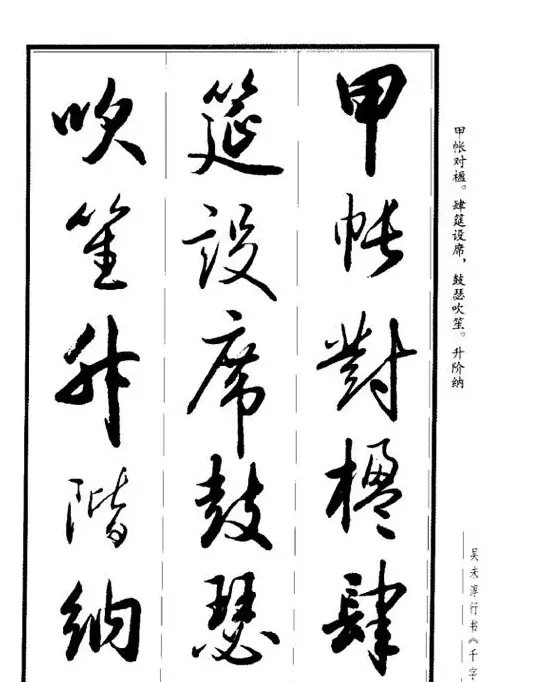 甲帐对楹。肆筵设席，鼓瑟吹笙。升阶纳
吴未淳行书《千字
甲帳對楹肆
筵設席鼓瑟
吹笙升階納